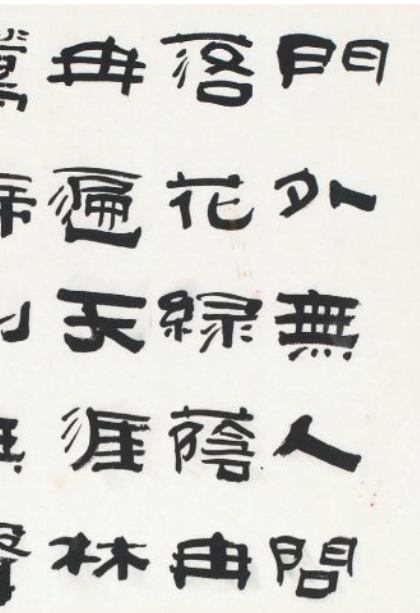 門外無人問
落花綠蔭冉
冉遍天涯林